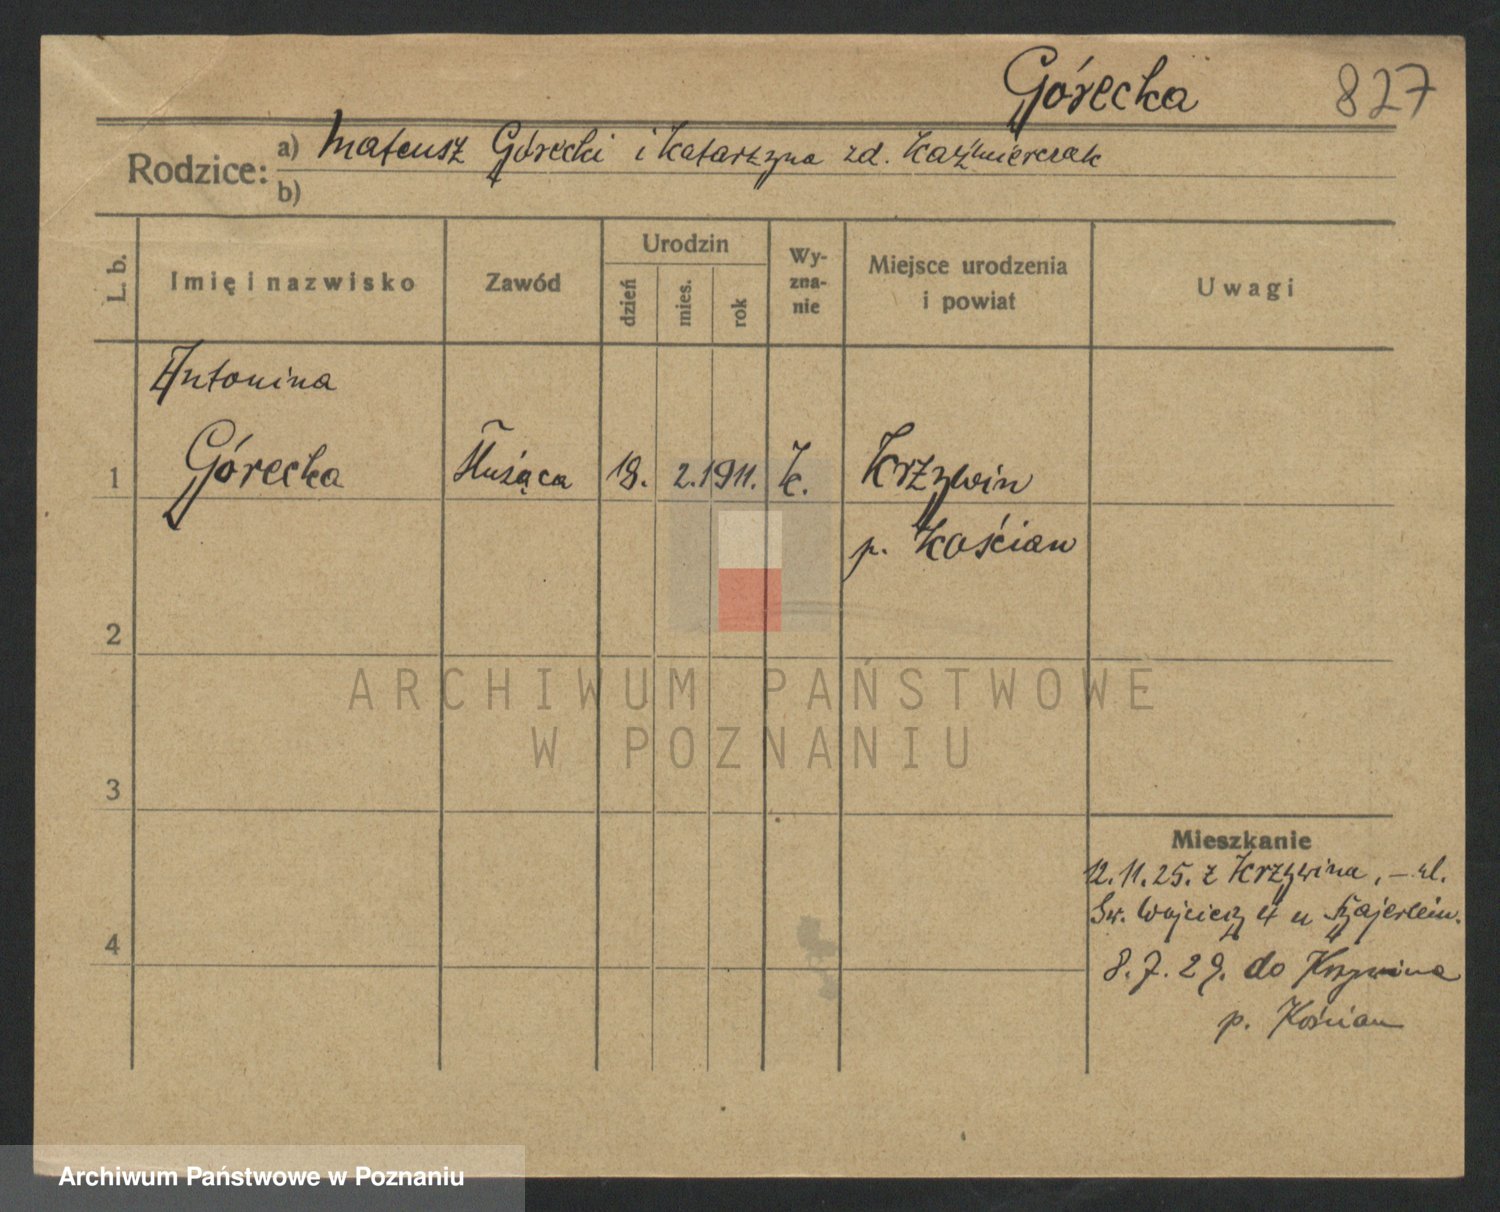 Górecka 827
Rodzice: a) Mateusz Górecki i Katarzyna zd. Kaźmierczak
b)
L. b. Imię i nazwisko Zawód Urodzin dzień mies. rok Wy-zna-nie Miejsce urodzenia i powiat Uwagi
Antonina
1 Górecka Służąca 18. 2. 1911. k. Krzywin
p. Kościan
2
ARCHIWUM PAŃSTWOWE
W POZNANIU
3
Mieszkanie
12.11.25. z Krzywina, – ul.
Św. Wojciech 4 u
4
8.7.29. do Krzywina
p. Kościan
Archiwum Państwowe w Poznaniu